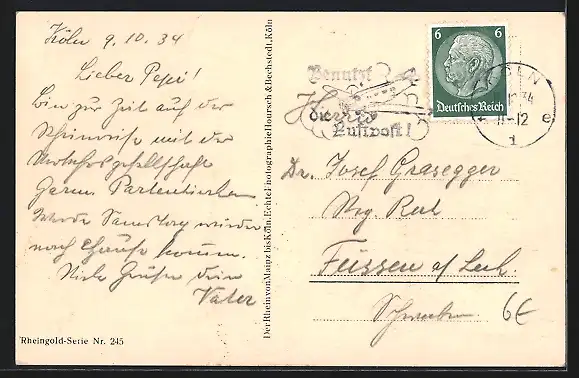 Köln 9.10.34
Lieber Pepi!
Bin zur Zeit auf der
Rheinreise mit der
Verkehrsgesellschaft
Garm. Partenkirchen
Werde Samstag wieder
nach Hause komm.
Viele Grüße dein
Vater
Rheingold-Serie Nr. 245
Der Rhein von Mainz bis Köln. Echte Photographie Hoursch & Bechstedt, Köln
6 6
Deutsches Reich
Benutzt
die
Luftpost!
KÖLN
11-12
e
1
Dr. Josef Grasegger
Reg. Rat
Füssen a/ Lech
Schwaben
6€